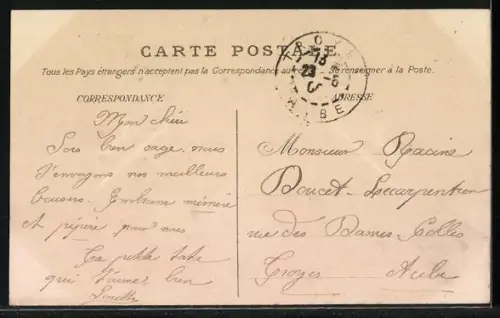 CARTE POSTALE
Tous les Pays étrangers n'acceptent pas la Correspondance au renseigner à la Poste.
CORRESPONDANCE
ADRESSE
TROYES
13
23 - 6
AUBE
Mon chéri
Sois bien sage, nous
t'envoyons nos meilleurs
baisers. Embrasse mémère
et pépère pour nous
Ta petite tata
qui t'aime bien
Monsieur Racine
Doucet-Lecarpentier
rue des Bas
Troyes Aube